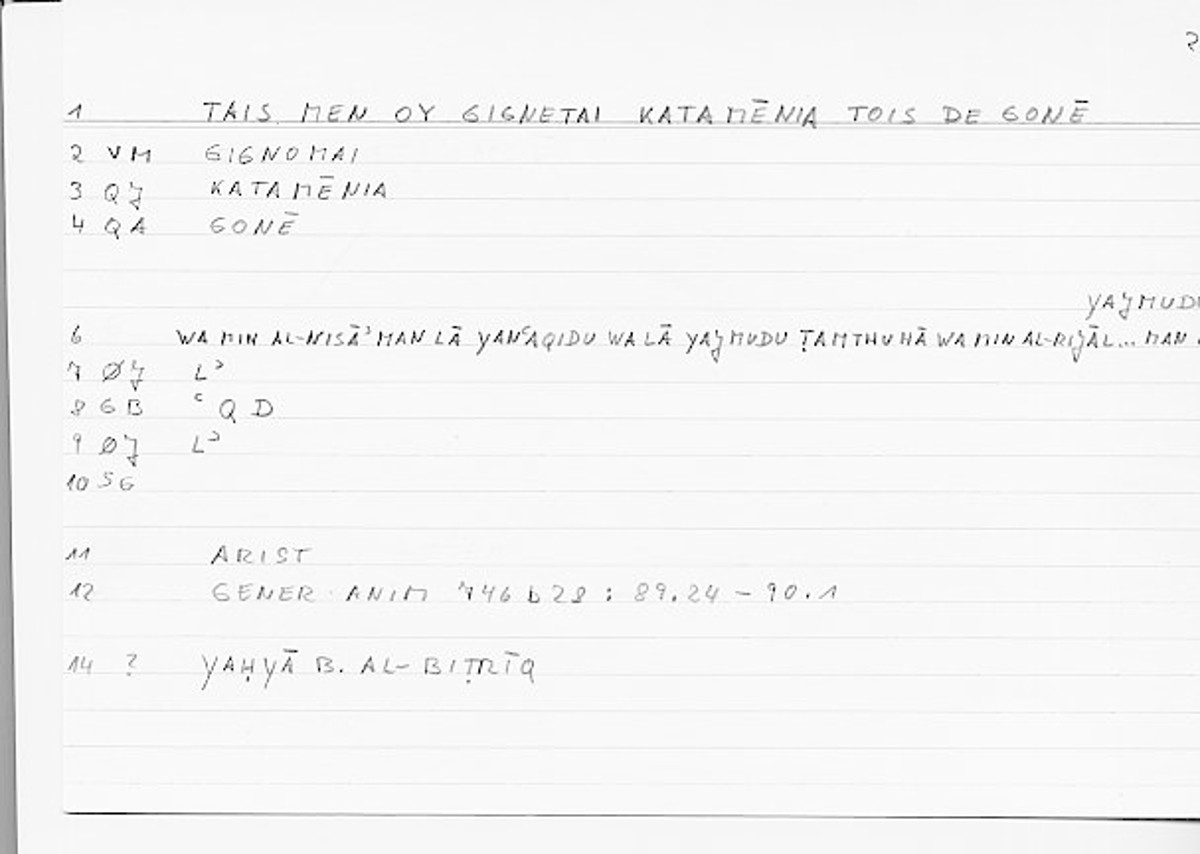 1 TAIS MEN OY GIGNETAI KATAMĒNIA TOIS DE GONĒ
2 VM GIGNOMAI
3 QJ KATAMĒNIA
4 QA GONĒ
YAJMUDU
6 WA MIN AL-NISĀʾ MAN LĀ YANʿAQIDU WA LĀ YAJMUDU ṬAMTHUHĀ WA MIN AL-RIJĀL... MAN
7 ØJ Lʾ
8 GB ʿQD
9 ØJ Lʾ
10 SG
11 ARIST
12 GENER ANIM 746 b 28 : 89.24 – 90.1
14 ? YAḤYĀ B. AL-BIṬRĪQ